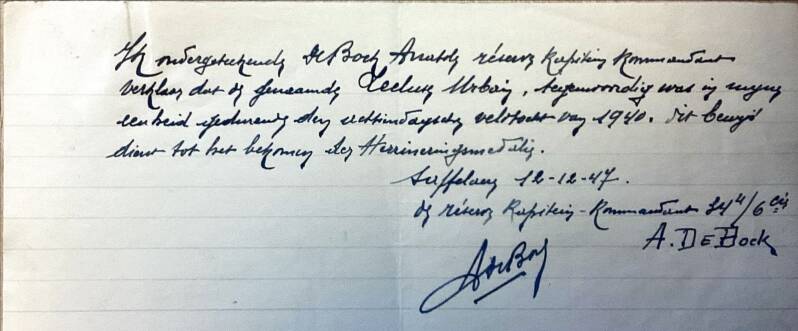 Ik ondergeteekende De Bock Anatole réserve Kapitein Kommandant
verklaar dat de genaamde Urbain, tegenwoordig was in mijne
eenheid gedurende den achttiendagsche veldtocht van 1940. Dit bewijs
dient tot het bekomen der Herrineringsmedalie.
12-12-47.
de réserve Kapitein-Kommandant
A. De Bock
ADeBock